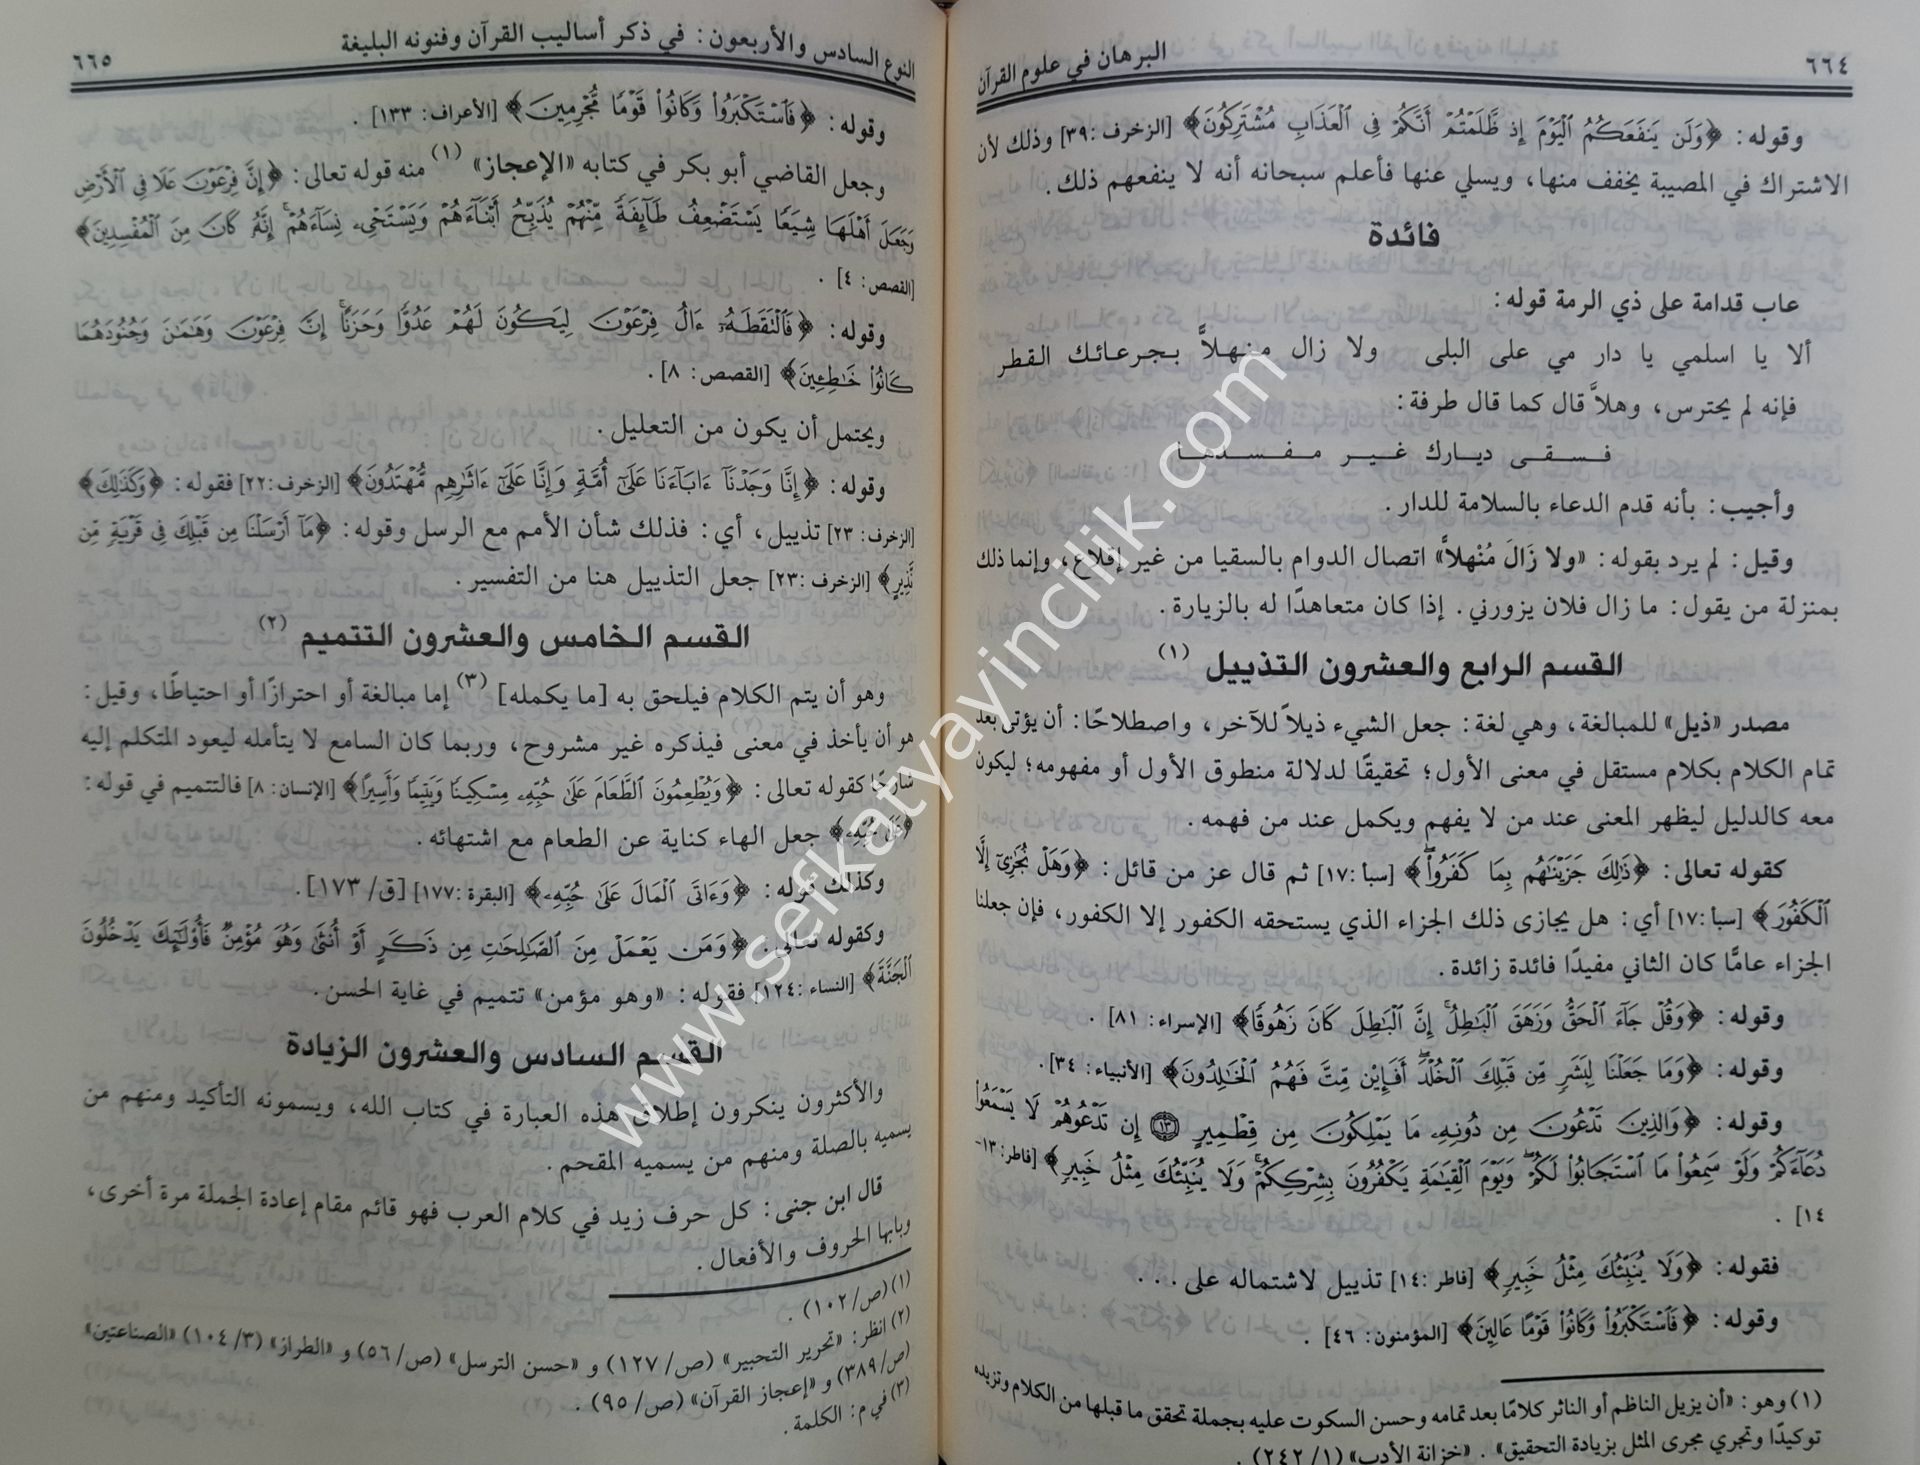 ٦٦٤
البرهان في علوم القرآن
وقوله: ﴿وَلَن يَنفَعَكُمُ الْيَوْمَ إِذ ظَّلَمْتُمْ أَنَّكُمْ فِي الْعَذَابِ مُشْتَرِكُونَ﴾ [الزخرف: ٣٩] وذلك لأن
الاشتراك في المصيبة يخفف منها، ويسلي عنها فأعلم سبحانه أنه لا ينفعهم ذلك.
فائدة
عاب قدامة على ذي الرمة قوله:
ألا يا اسلمي يا دار مي على البلى ولا زال منهلاً بجرعائك القطر
فإنه لم يحترس، وهلاَّ قال كما قال طرفة:
فسقى ديارك غير مفسدها
وأجيب: بأنه قدم الدعاء بالسلامة للدار.
وقيل: لم يرد بقوله: «ولا زَالَ مُنْهلاً» اتصال الدوام بالسقيا من غير إقلاع، وإنما ذلك
بمنزلة من يقول: ما زال فلان يزورني. إذا كان متعاهدًا له بالزيارة.
القسم الرابع والعشرون التذييل (١)
مصدر «ذيل» للمبالغة، وهي لغة: جعل الشيء ذيلاً للآخر، واصطلاحًا: أن يؤتى بعد
تمام الكلام بكلام مستقل في معنى الأول؛ تحقيقًا لدلالة منطوق الأول أو مفهومه؛ ليكون
معه كالدليل ليظهر المعنى عند من لا يفهم ويكمل عند من فهمه.
كقوله تعالى: ﴿ذَٰلِكَ جَزَيْنَاهُم بِمَا كَفَرُوا﴾ [سبأ: ١٧] ثم قال عز من قائل: ﴿وَهَلْ نُجَازِي إِلَّا
الْكَفُورَ﴾ [سبأ: ١٧] أي: هل يجازى ذلك الجزاء الذي يستحقه الكفور إلا الكفور، فإن جعلنا
الجزاء عامًّا كان الثاني مفيدًا فائدة زائدة.
وقوله: ﴿وَقُلْ جَاءَ الْحَقُّ وَزَهَقَ الْبَاطِلُ إِنَّ الْبَاطِلَ كَانَ زَهُوقًا﴾ [الإسراء: ٨١].
وقوله: ﴿وَمَا جَعَلْنَا لِبَشَرٍ مِّن قَبْلِكَ الْخُلْدَ أَفَإِيْن مِّتَّ فَهُمُ الْخَالِدُونَ﴾ [الأنبياء: ٣٤].
وقوله: ﴿وَالَّذِينَ تَدْعُونَ مِن دُونِهِ مَا يَمْلِكُونَ مِن قِطْمِيرٍ ۝١٣ إِن تَدْعُوهُمْ لَا يَسْمَعُوا
دُعَاءَكُمْ وَلَوْ سَمِعُوا مَا اسْتَجَابُوا لَكُمْ وَيَوْمَ الْقِيَامَةِ يَكْفُرُونَ بِشِرْكِكُمْ وَلَا يُنَبِّئُكَ مِثْلُ خَبِيرٍ﴾ [فاطر: ١٣-
١٤].
فقوله: ﴿وَلَا يُنَبِّئُكَ مِثْلُ خَبِيرٍ﴾ [فاطر: ١٤] تذييل لاشتماله على ...
وقوله: ﴿فَاسْتَكْبَرُوا وَكَانُوا قَوْمًا عَالِينَ﴾ [المؤمنون: ٤٦].
(١) وهو: «أن يزيل الناظم أو الناثر كلامًا بعد تمامه وحسن السكوت عليه بجملة تحقق ما قبلها من الكلام وتزيده
توكيدًا وتجري مجرى المثل بزيادة التحقيق». «خزانة الأدب» (١/ ٢٤٢).
النوع السادس والأربعون: في ذكر أساليب القرآن وفنونه البليغة
٦٦٥
وقوله: ﴿فَاسْتَكْبَرُوا وَكَانُوا قَوْمًا مُّجْرِمِينَ﴾ [الأعراف: ١٣٣].
وجعل القاضي أبو بكر في كتابه «الإعجاز» (١) منه قوله تعالى: ﴿إِنَّ فِرْعَوْنَ عَلَا فِي الْأَرْضِ
وَجَعَلَ أَهْلَهَا شِيَعًا يَسْتَضْعِفُ طَائِفَةً مِّنْهُمْ يُذَبِّحُ أَبْنَاءَهُمْ وَيَسْتَحْيِي نِسَاءَهُمْ إِنَّهُ كَانَ مِنَ الْمُفْسِدِينَ﴾
[القصص: ٤].
وقوله: ﴿فَالْتَقَطَهُ آلُ فِرْعَوْنَ لِيَكُونَ لَهُمْ عَدُوًّا وَحَزَنًا إِنَّ فِرْعَوْنَ وَهَامَانَ وَجُنُودَهُمَا
كَانُوا خَاطِئِينَ﴾ [القصص: ٨].
ويحتمل أن يكون من التعليل.
وقوله: ﴿إِنَّا وَجَدْنَا آبَاءَنَا عَلَىٰ أُمَّةٍ وَإِنَّا عَلَىٰ آثَارِهِم مُّهْتَدُونَ﴾ [الزخرف: ٢٢] فقوله: ﴿وَكَذَٰلِكَ﴾
[الزخرف: ٢٣] تذييل، أي: فذلك شأن الأمم مع الرسل وقوله: ﴿مَا أَرْسَلْنَا مِن قَبْلِكَ فِي قَرْيَةٍ مِّن
نَّذِيرٍ﴾ [الزخرف: ٢٣] جعل التذييل هنا من التفسير.
القسم الخامس والعشرون التتميم (٢)
وهو أن يتم الكلام فيلحق به [ما يكمله] (٣) إما مبالغة أو احترازًا أو احتياطًا، وقيل:
هو أن يأخذ في معنى فيذكره غير مشروح، وربما كان السامع لا يتأمله ليعود المتكلم إليه
شارحًا كقوله تعالى: ﴿وَيُطْعِمُونَ الطَّعَامَ عَلَىٰ حُبِّهِ مِسْكِينًا وَيَتِيمًا وَأَسِيرًا﴾ [الإنسان: ٨] فالتتميم في قوله:
﴿عَلَىٰ حُبِّهِ﴾ جعل الهاء كناية عن الطعام مع اشتهائه.
وكذلك قوله: ﴿وَآتَى الْمَالَ عَلَىٰ حُبِّهِ﴾ [البقرة: ١٧٧] [ق/ ١٧٣].
وكقوله تعالى: ﴿وَمَن يَعْمَلْ مِنَ الصَّالِحَاتِ مِن ذَكَرٍ أَوْ أُنثَىٰ وَهُوَ مُؤْمِنٌ فَأُولَٰئِكَ يَدْخُلُونَ
الْجَنَّةَ﴾ [النساء: ١٢٤] فقوله: «وهو مؤمن» تتميم في غاية الحسن.
القسم السادس والعشرون الزيادة
والأكثرون ينكرون إطلاق هذه العبارة في كتاب الله، ويسمونه التأكيد ومنهم من
يسميه بالصلة ومنهم من يسميه المقحم.
قال ابن جنى: كل حرف زيد في كلام العرب فهو قائم مقام إعادة الجملة مرة أخرى،
وبابها الحروف والأفعال.
(١) (ص/ ١٠٢).
(٢) انظر: «تحرير التحبير» (ص/ ١٢٧) و «حسن الترسل» (ص/ ٥٦) و «الطراز» (٣/ ١٠٤) «الصناعتين»
(ص/ ٣٨٩) و «إعجاز القرآن» (ص/ ٩٥).
(٣) في م: الكلمة.
www.sefkatyayincilik.com